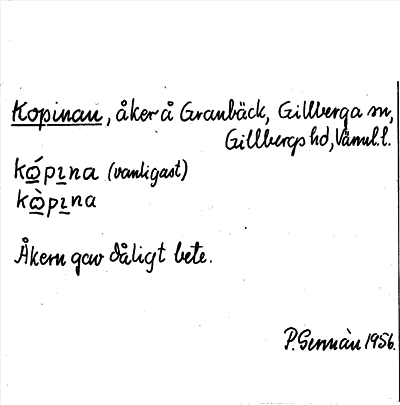 Kopinan, åker å Granbäck, Gillberga sn,
Gillbergs hd, Värml. l.
kώpɩna (vanligast)
kὼpɩna
Åkern gav dåligt bete.
P. Germàn 1956.